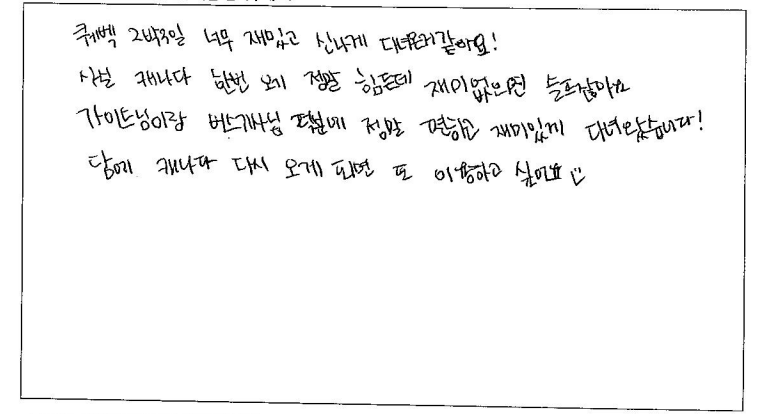 퀘벡 2박3일 너무 재밌고 신나게 다녀온거같아요!
사실 캐나다 한번 오기 정말 힘든데 재미없으면 슬프잖아요
가이드님이랑 버스기사님 덕분에 정말 편하고 재미있게 다녀왔습니다!
담에 캐나다 다시 오게 되면 또 이용하고 싶어요